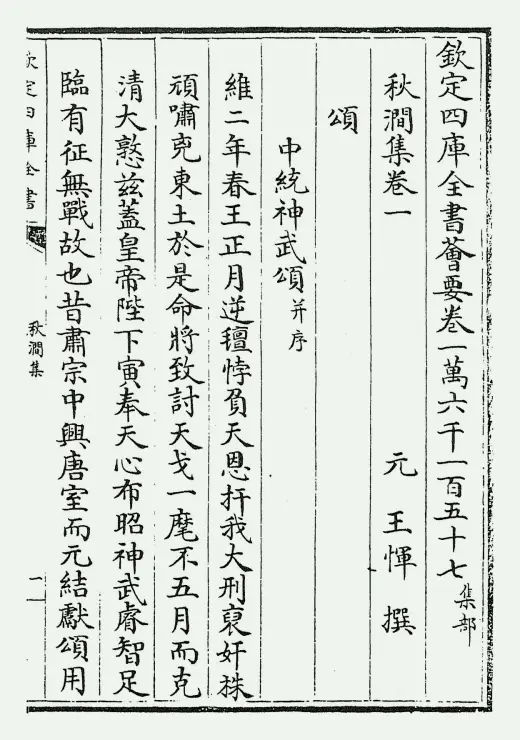 欽定四庫全書薈要卷一萬六千一百五十七 集部
秋澗集卷一 元 王惲 撰
頌
中統神武頌 并序
維二年春王正月逆璮悖負天恩扞我大刑裒奸株
頑嘯兇東土於是命將致討天戈一麾不五月而克
清大憝兹蓋皇帝陛下寅奉天心布昭神武睿智足
臨有征無戰故也昔肅宗中興唐室而元結獻頌用
欽定四庫全書
秋澗集
一